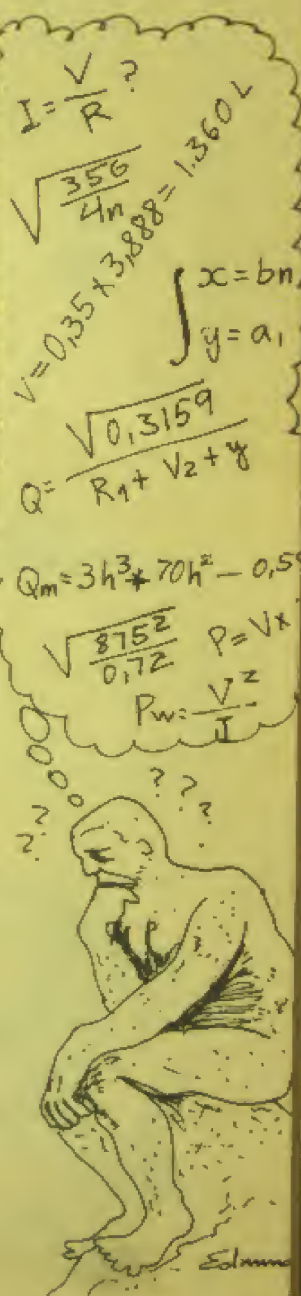 I = V/R ?
√(356/4n)
V = 0,35 x 3,888 = 1.360 L
∫ x = bn
y = a₁
Q = √0,3159 / R₁ + V₂ + y
Qm = 3h³ * 70h² – 0,5
√(8752/0,72)
P = Vx
Pw = V²/I
? ? ?
? ?